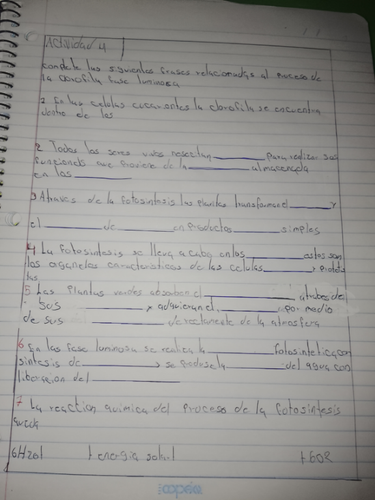 Actividad 4
complete las siguientes frases relacionadas al proceso de
la clorofila fase luminosa
1 En las celulas eucariontes la clorofila se encuentra
dentro de las
2 Todos los seres vivos necesitan ________ para realizar sus
funciones que proviene de la ________ almacenada
en los ________
3 Atraves de la fotosintesis las plantas transforman el ________ y
el ________ de ________ en productos ________ simples
4 La fotosintesis se lleva a cabo en los ________ estos son
los organelos caracteristicas de las celulas ________ y
las
5 Las plantas verdes absorben el ________ atrabes de
sus ________ y adquieren el ________ por medio
de sus ________ directamente de la atmosfera
6 En las fase luminosa se realiza la ________ fotosintetica con
sintesis de ________ y se produce la ________ del agua con
liberacion del ________
7 La reaction quimica del proceso de la fotosintesis
6H2O1 + energia solar + 6O2
copán